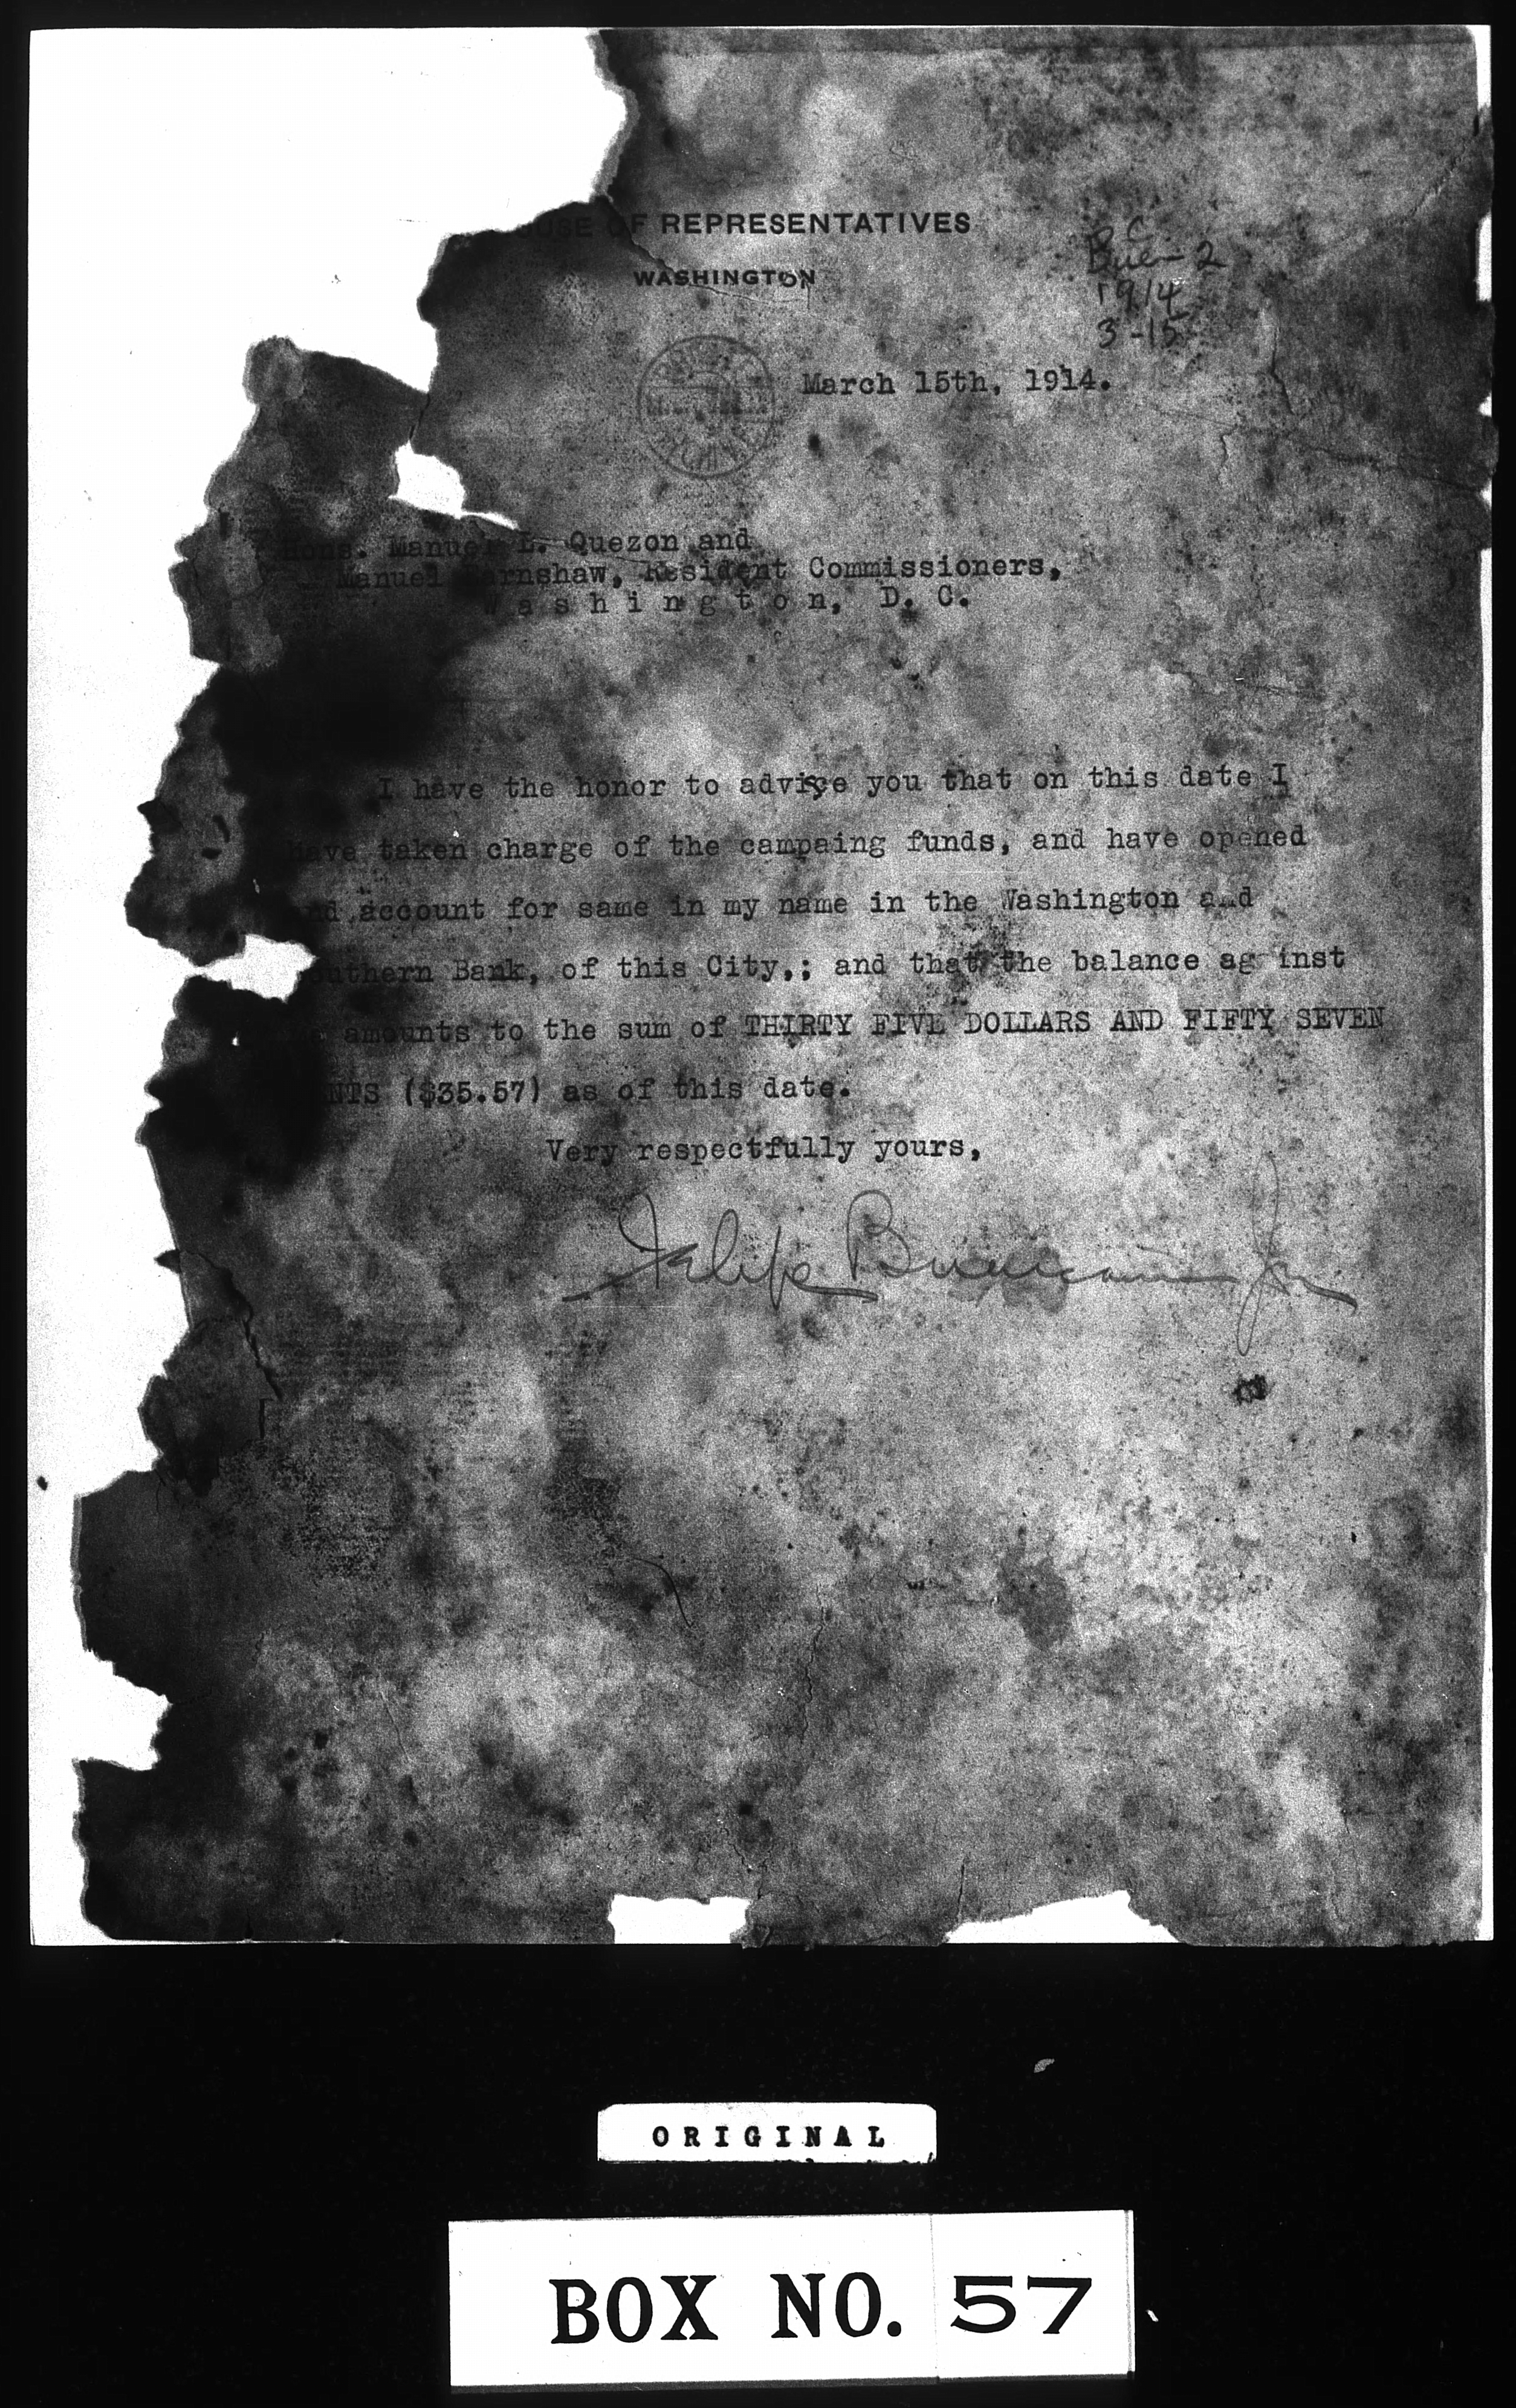 HOUSE OF REPRESENTATIVES
WASHINGTON
C
Buen 2
1914
3-15
March 15th, 1914.
Hons. Manuel L. Quezon and
Manuel Earnshaw, Resident Commissioners,
Washington, D. C.
I have the honor to advise you that on this date I
have taken charge of the campaing funds, and have opened
account for same in my name in the Washington and
Southern Bank, of this City,; and that the balance against
amounts to the sum of THIRTY FIVE DOLLARS AND FIFTY SEVEN
CENTS ($35.57) as of this date.
Very respectfully yours,
Felipe Buencamino Jr
ORIGINAL
BOX NO. 57